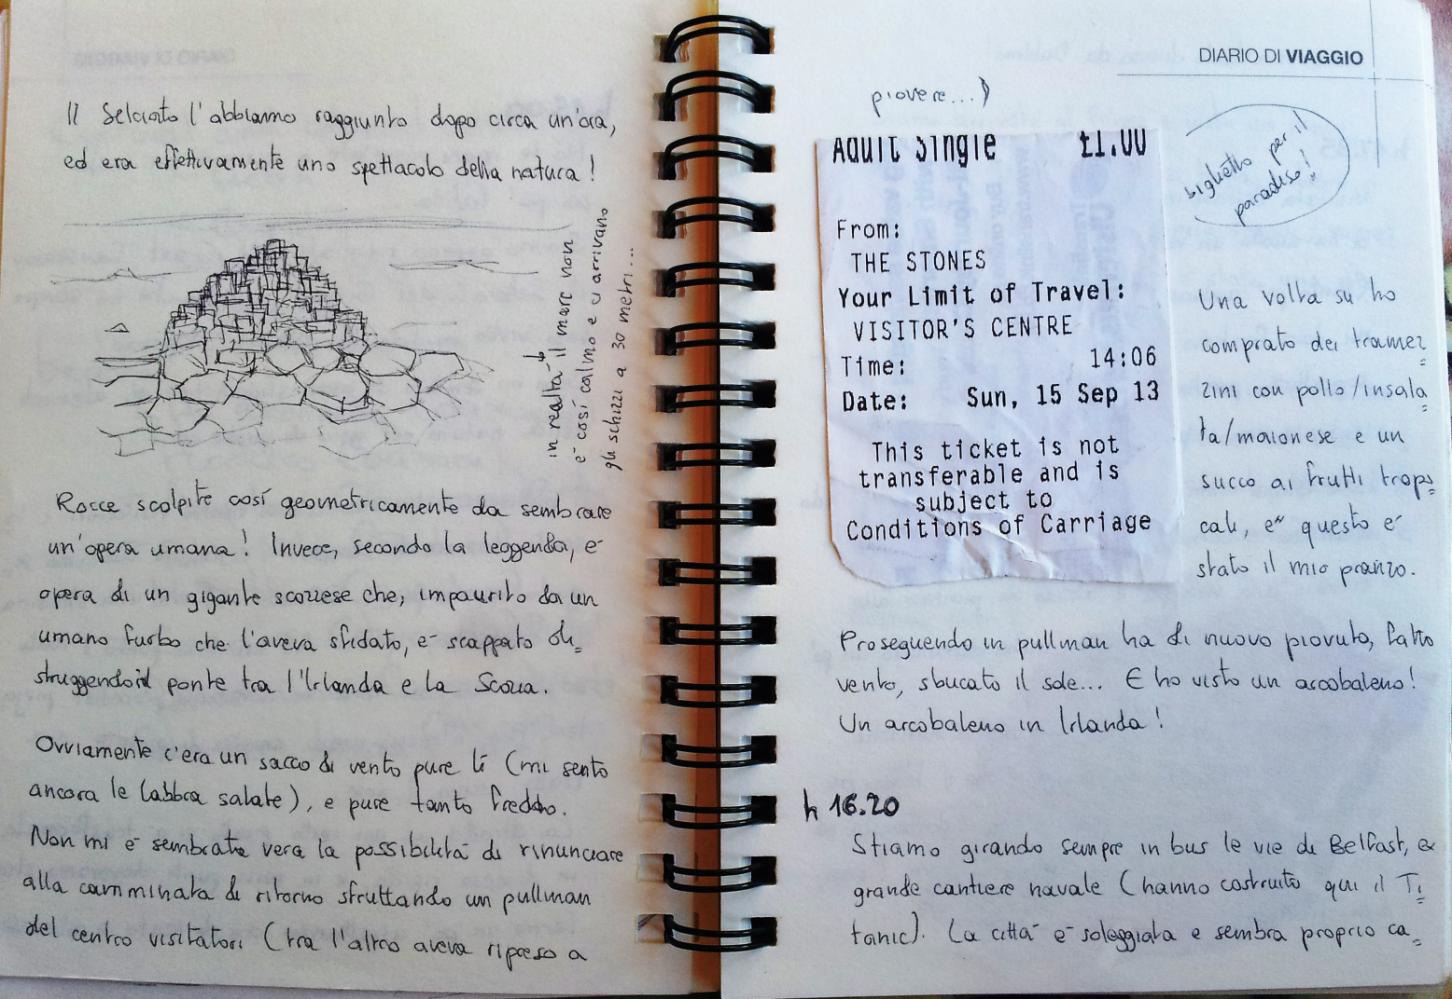 Il Selciato l'abbiamo raggiunto dopo circa un'ora,
ed era effettivamente uno spettacolo della natura!
in realtà il mare non
è così calmo e ci arrivano
gli schizzi a 30 metri...
Rocce scolpite così geometricamente da sembrare
un'opera umana! Invece, secondo la leggenda, è
opera di un gigante scozzese che, impaurito da un
umano furbo che l'aveva sfidato, è scappato di=
struggendo il ponte tra l'Irlanda e la Scozia.
Ovviamente c'era un sacco di vento pure lì (mi sento
ancora le labbra salate), e pure tanto freddo.
Non mi è sembrata vera la possibilità di rinunciare
alla camminata di ritorno sfruttando un pullman
del centro visitatori (tra l'altro aveva ripreso a
DIARIO DI VIAGGIO
piovere...)
Adult Single £1.00
From:
THE STONES
Your Limit of Travel:
VISITOR'S CENTRE
Time: 14:06
Date: Sun, 15 Sep 13
This ticket is not
transferable and is
subject to
Conditions of Carriage
biglietto per il
paradiso!
Una volta su ho
comprato dei tramez=
zini con pollo/insala=
ta/maionese e un
succo ai frutti tropi=
cali, e questo è
stato il mio pranzo.
Proseguendo in pullman ha di nuovo piovuto, fatto
vento, sbucato il sole... E ho visto un arcobaleno!
Un arcobaleno in Irlanda!
h 16.20
Stiamo girando sempre in bus le vie di Belfast, ex
grande cantiere navale (hanno costruito qui il Ti=
tanic). La città è soleggiata e sembra proprio ca=